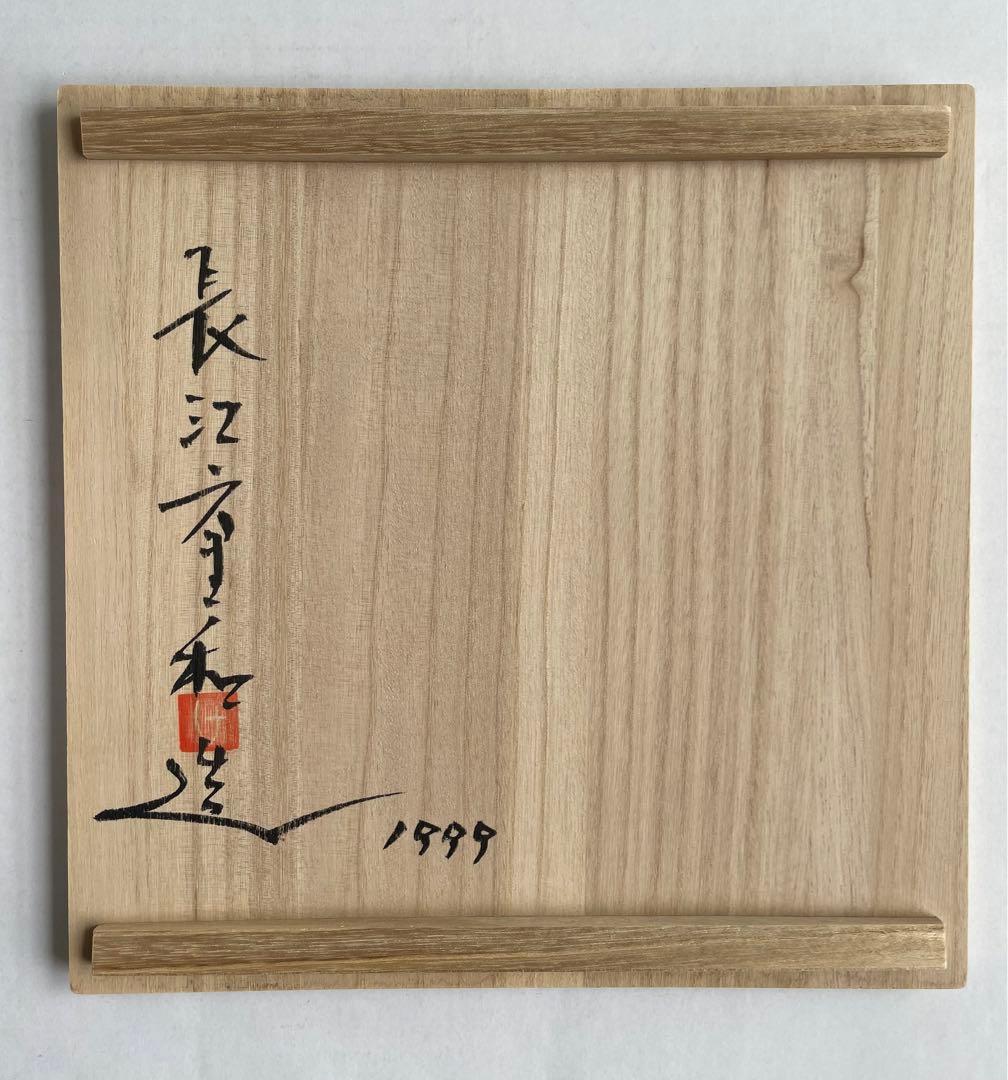 長江重和造
1999